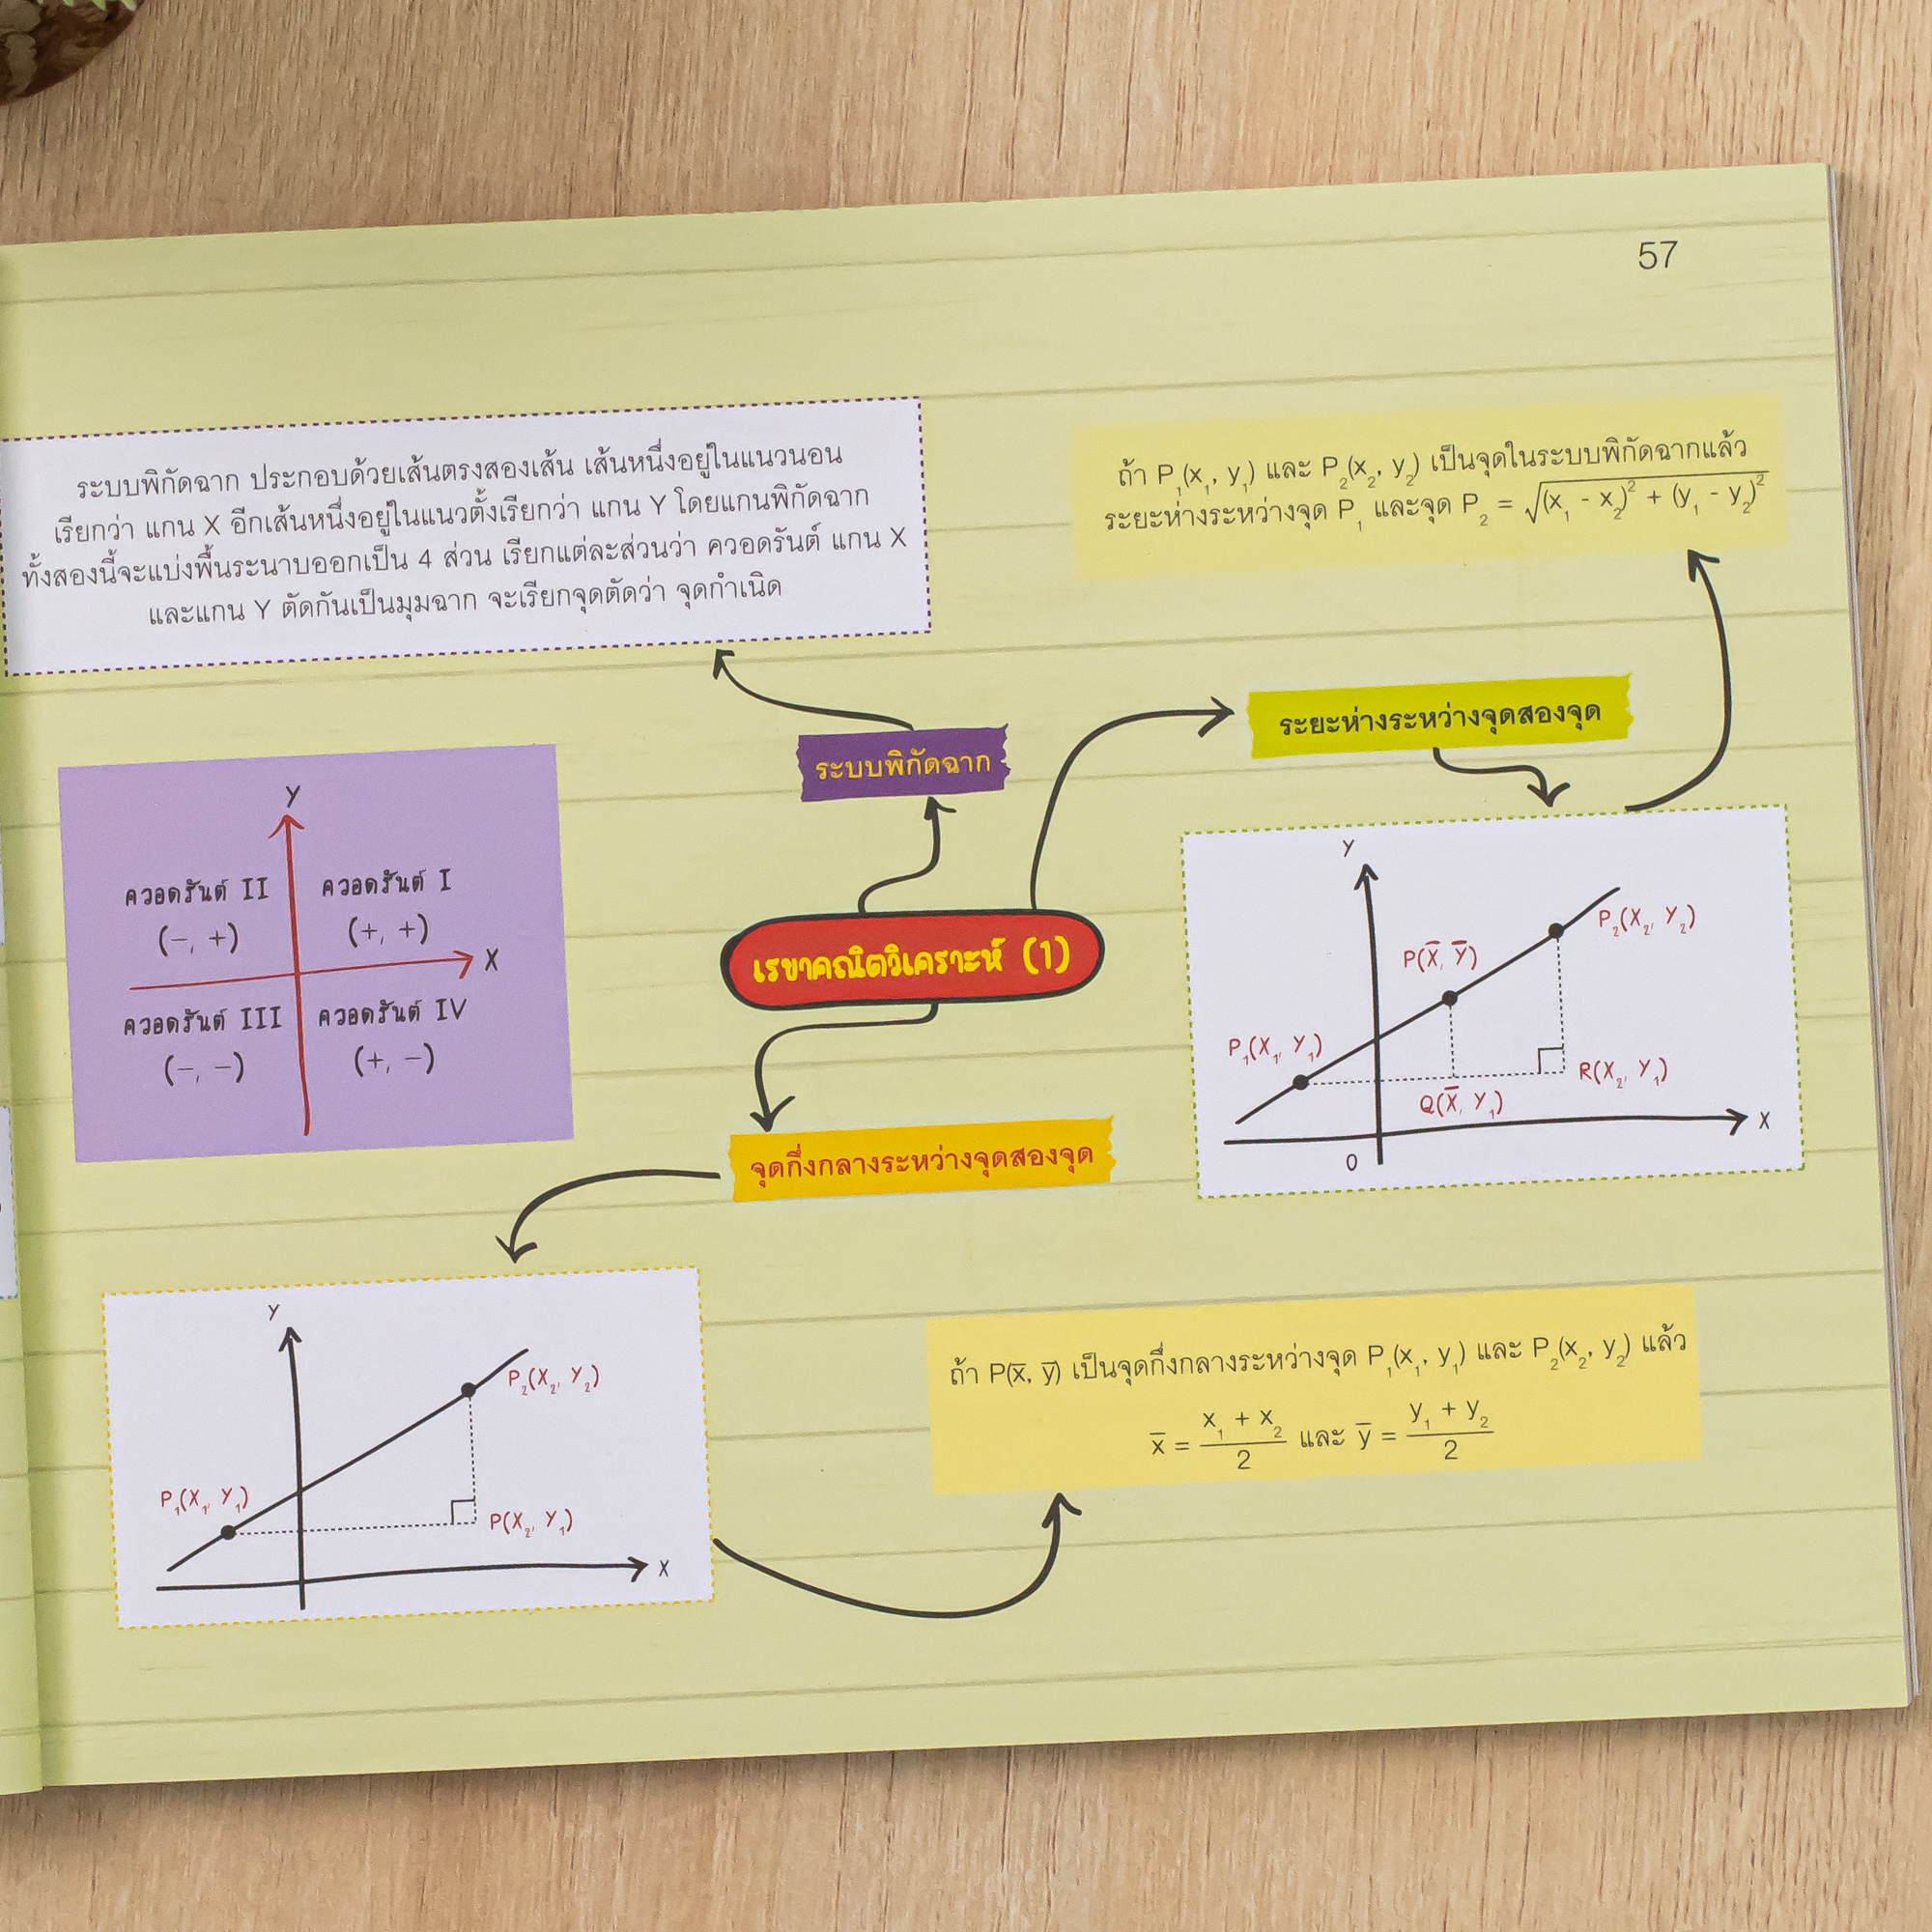 57
ระบบพิกัดฉาก ประกอบด้วยเส้นตรงสองเส้น เส้นหนึ่งอยู่ในแนวนอน
เรียกว่า แกน X อีกเส้นหนึ่งอยู่ในแนวตั้งเรียกว่า แกน Y โดยแกนพิกัดฉาก
ทั้งสองนี้จะแบ่งพื้นระนาบออกเป็น 4 ส่วน เรียกแต่ละส่วนว่า ควอดรันต์ แกน X
และแกน Y ตัดกันเป็นมุมฉาก จะเรียกจุดตัดว่า จุดกำเนิด
ถ้า P₁(x₁, y₁) และ P₂(x₂, y₂) เป็นจุดในระบบพิกัดฉากแล้ว
ระยะห่างระหว่างจุด P₁ และจุด P₂ = √(x₁ - x₂)² + (y₁ - y₂)²
ระบบพิกัดฉาก
ระยะห่างระหว่างจุดสองจุด
Y
ควอดรันต์ II ควอดรันต์ I
(−, +) (+, +)
X
ควอดรันต์ III ควอดรันต์ IV
(−, −) (+, −)
เรขาคณิตวิเคราะห์ (1)
Y
P₂(X₂, Y₂)
P(X̅, Y̅)
P₁(X₁, Y₁)
R(X₂, Y₁)
Q(X̅, Y₁)
X
0
จุดกึ่งกลางระหว่างจุดสองจุด
Y
P₂(X₂, Y₂)
P₁(X₁, Y₁)
P(X₂, Y₁)
X
ถ้า P(x̅, y̅) เป็นจุดกึ่งกลางระหว่างจุด P₁(x₁, y₁) และ P₂(x₂, y₂) แล้ว
x̅ = (x₁ + x₂)/2 และ y̅ = (y₁ + y₂)/2